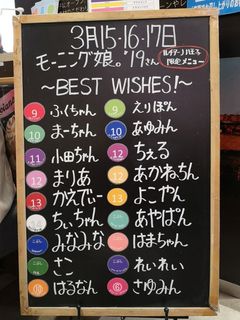 3月15・16・17日
モーニング娘。'19さん
限定メニュー
~BEST WISHES!~
9 ふくちゃん 9 えりぽん
10 まーちゃん 10 あゆみん
11 小田ちゃん 12 ちぇる
12 まりあ 12 あかねちん
13 かえでぃー 13 よこやん
14 ちぃちゃん こぶし あやぱん
こぶし みなみな こぶし はまちゃん
こぶし さこ こぶし れいれい
⑩ はるなん ⑥ さゆみん